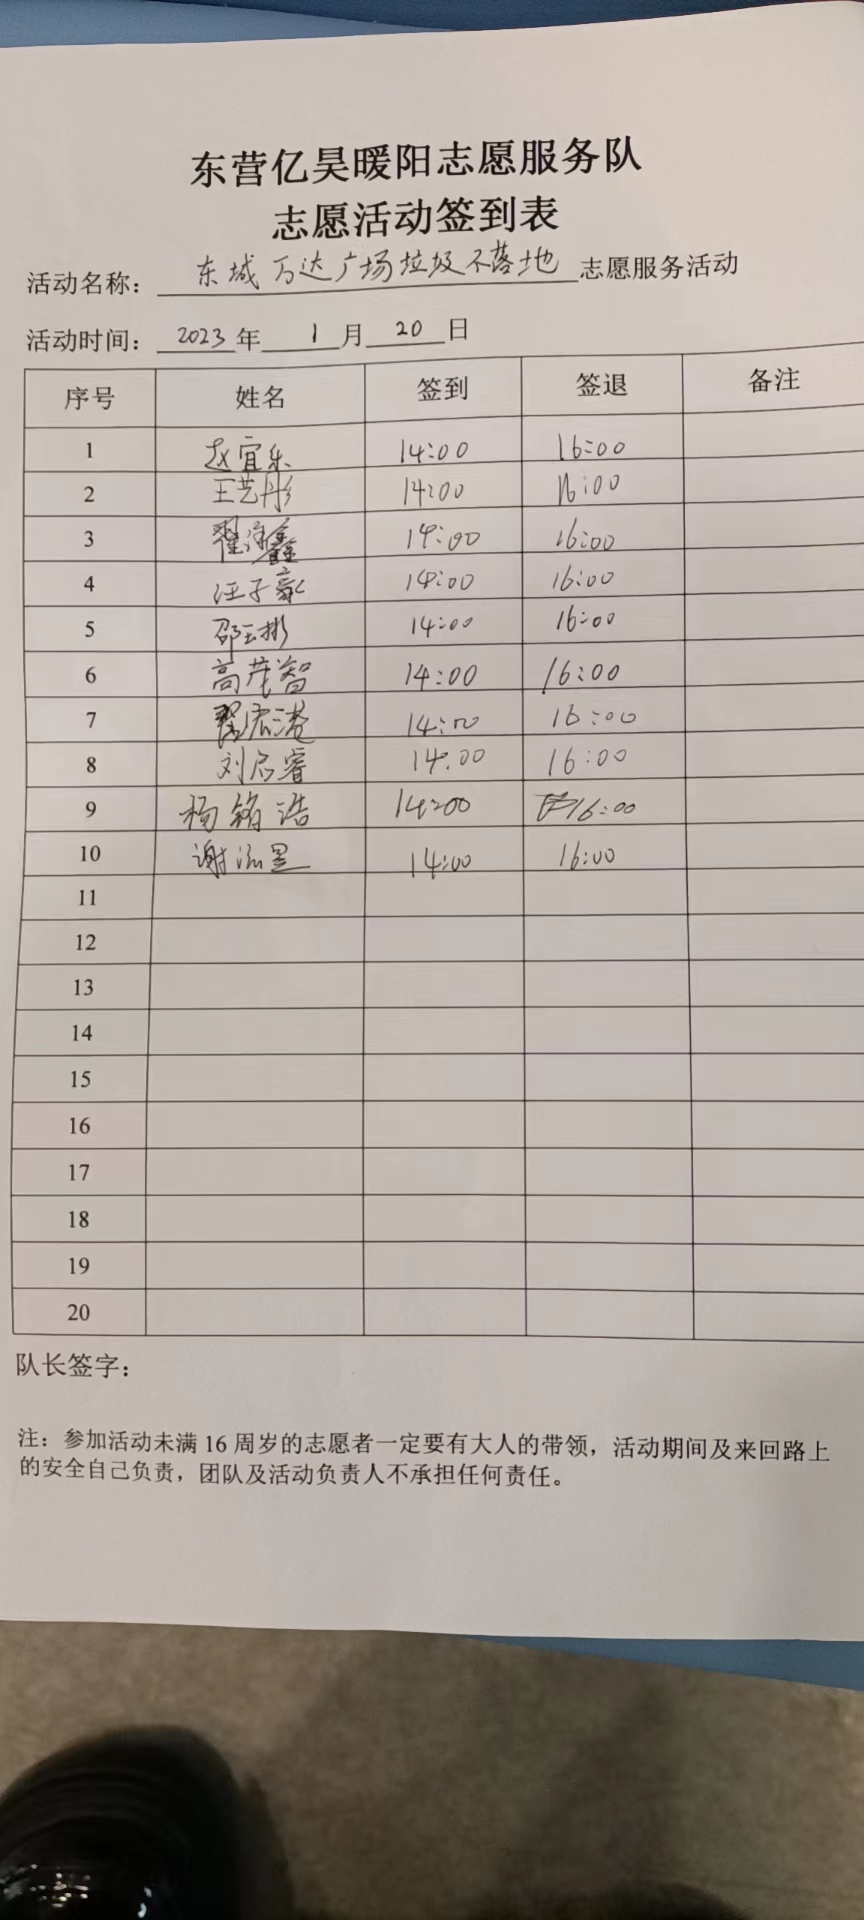 东营亿昊暖阳志愿服务队
志愿活动签到表
活动名称：东城万达广场垃圾不落地志愿服务活动
活动时间：2023年1月20日
序号 姓名 签到 签退 备注
1 赵宜乐 14:00 16:00
2 王艺彤 14:00 16:00
3 翟 鑫 14:00 16:00
4 汪子豪 14:00 16:00
5 邵玉彬 14:00 16:00
6 高茂智 14:00 16:00
7 翟宏港 14:00 16:00
8 刘启睿 14:00 16:00
9 杨铭浩 14:00 16:00
10 谢 14:00 16:00
11
12
13
14
15
16
17
18
19
20
队长签字：
注：参加活动未满16周岁的志愿者一定要有大人的带领，活动期间及来回路上
的安全自己负责，团队及活动负责人不承担任何责任。